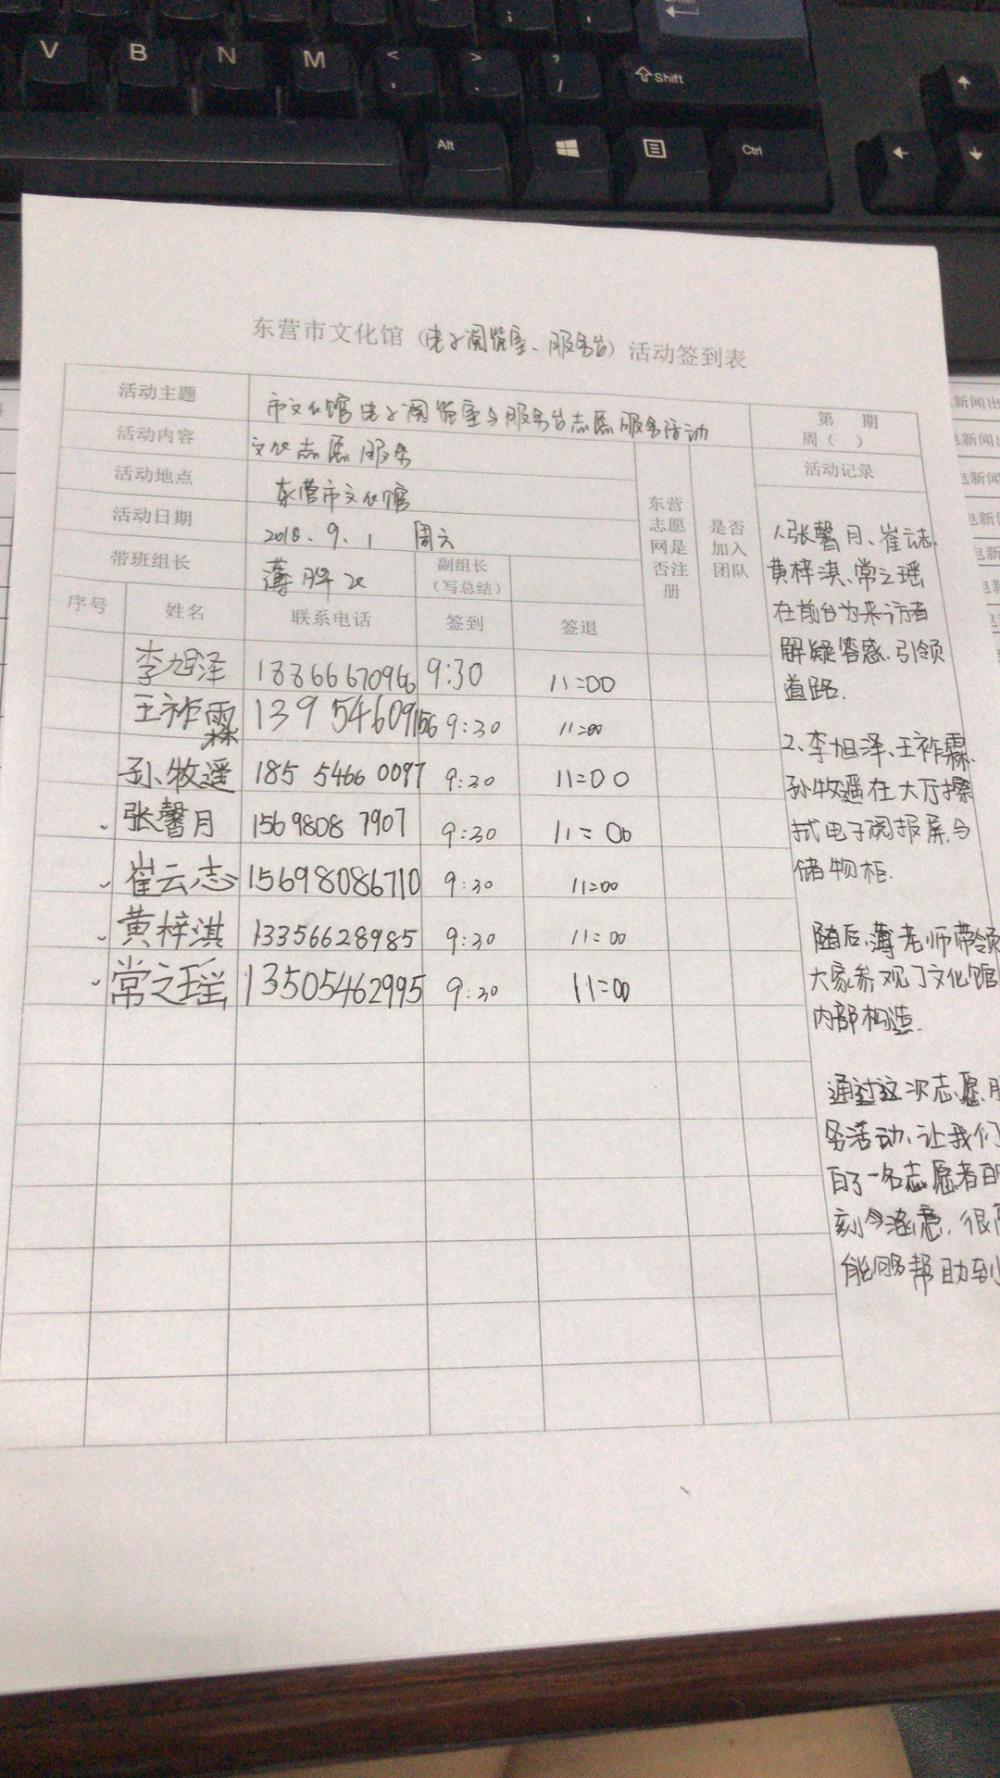 V B N M < , > . ? / ⇧Shift
Alt Ctrl
东营市文化馆（电子阅览室、服务台）活动签到表
活动主题 市文化馆电子阅览室与服务台志愿服务活动 第 期
周（ ）
活动内容 文化志愿服务
活动地点 东营市文化馆
活动日期 2018.9.1 周六
带班组长 薄 副组长（写总结）
东营志愿网是否注册 是否加入团队 活动记录
序号 姓名 联系电话 签到 签退
李旭泽 18366670966 9:30 11:00
王祚霖 13954609156 9:30 11:00
孙牧遥 185 5466 0097 9:30 11:00
张馨月 156 9808 7907 9:30 11:00
崔云志 15698086710 9:30 11:00
黄梓淇 13356628985 9:30 11:00
常之瑶 13505462995 9:30 11:00
1、张馨月、崔云志、
黄梓淇、常之瑶
在前台为来访者
解疑答惑、引领
道路.
2、李旭泽、王祚霖、
孙牧遥在大厅擦
拭电子阅报屏与
储物柜.
随后,薄老师带领
大家参观了文化馆
内部构造.
通过这次志愿服
务活动,让我们
白了一名志愿者的
刻含义,很高
能够帮助到